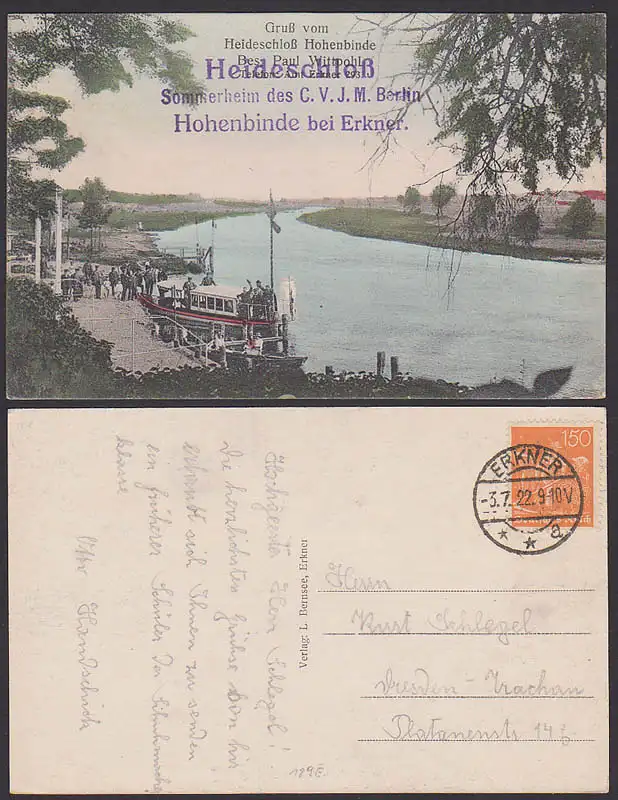 Gruß vom
Heideschloß Hohenbinde
Bes. Paul Wittpohl
Telefon: Amt Erkner
Heideschloß
Sommerheim des C.V.J.M. Berlin
Hohenbinde bei Erkner.
150
ERKNER
-3.7.22.9-10V
* * a
Verlag: L. Bernsee, Erkner
Herrn
Kurt Schlegel
Dresden-Trachau
Platanenstr 14
Herr Schlegel!
Die herzlichsten Grüße von hier
erlaubt sich Ihnen zu senden
ein früherer Schüler der
klasse
Handschick
129E